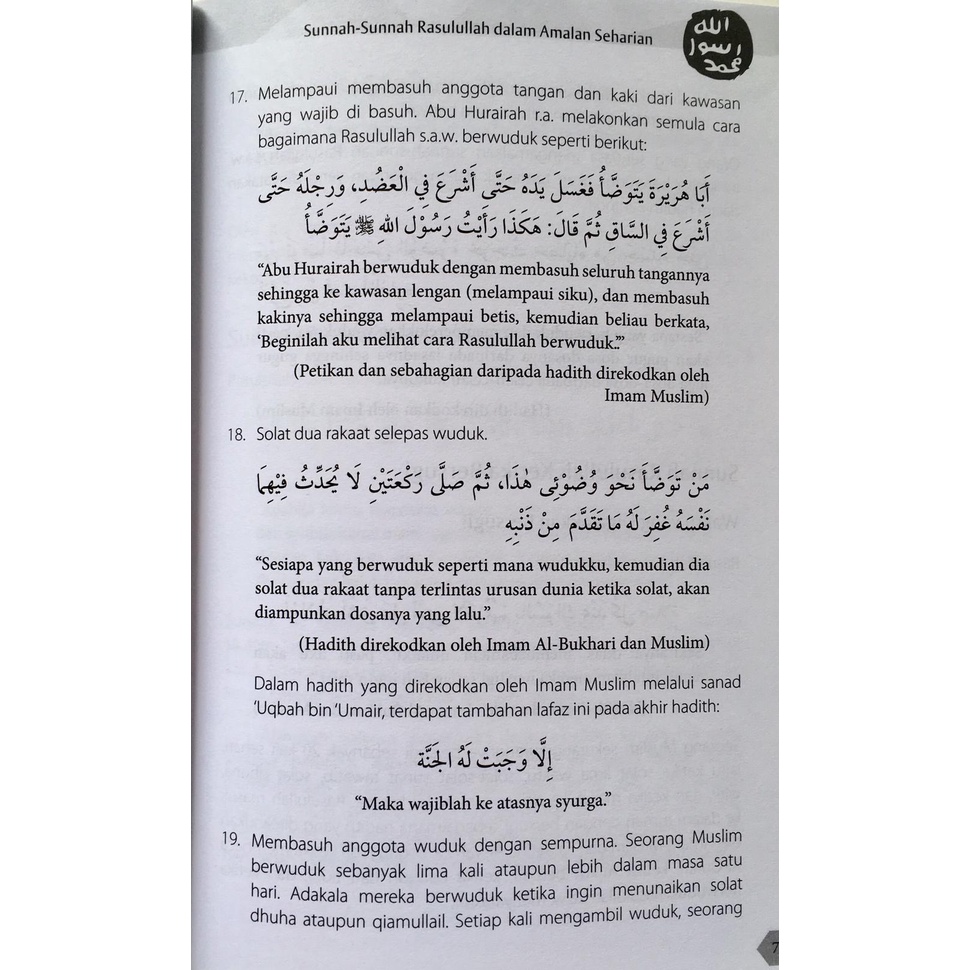 Sunnah-Sunnah Rasulullah dalam Amalan Seharian
الله
رسول
محمد
17. Melampaui membasuh anggota tangan dan kaki dari kawasan
yang wajib di basuh. Abu Hurairah r.a. melakonkan semula cara
bagaimana Rasulullah s.a.w. berwuduk seperti berikut:
أَبَا هُرَيْرَةَ يَتَوَضَّأُ فَغَسَلَ يَدَهُ حَتَّى أَشْرَعَ فِي الْعَضُدِ، وَرِجْلَهُ حَتَّى
أَشْرَعَ فِي السَّاقِ ثُمَّ قَالَ: هَكَذَا رَأَيْتُ رَسُوْلَ اللهِ ﷺ يَتَوَضَّأُ
“Abu Hurairah berwuduk dengan membasuh seluruh tangannya
sehingga ke kawasan lengan (melampaui siku), dan membasuh
kakinya sehingga melampaui betis, kemudian beliau berkata,
‘Beginilah aku melihat cara Rasulullah berwuduk.’”
(Petikan dan sebahagian daripada hadith direkodkan oleh
Imam Muslim)
18. Solat dua rakaat selepas wuduk.
مَنْ تَوَضَّأَ نَحْوَ وُضُوْئِى هٰذَا، ثُمَّ صَلَّى رَكْعَتَيْنِ لَا يُحَدِّثُ فِيْهِمَا
نَفْسَهُ غُفِرَ لَهُ مَا تَقَدَّمَ مِنْ ذَنْبِهِ
“Sesiapa yang berwuduk seperti mana wudukku, kemudian dia
solat dua rakaat tanpa terlintas urusan dunia ketika solat, akan
diampunkan dosanya yang lalu.”
(Hadith direkodkan oleh Imam Al-Bukhari dan Muslim)
Dalam hadith yang direkodkan oleh Imam Muslim melalui sanad
‘Uqbah bin ‘Umair, terdapat tambahan lafaz ini pada akhir hadith:
إِلَّا وَجَبَتْ لَهُ الجَنَّة
“Maka wajiblah ke atasnya syurga.”
19. Membasuh anggota wuduk dengan sempurna. Seorang Muslim
berwuduk sebanyak lima kali ataupun lebih dalam masa satu
hari. Adakala mereka berwuduk ketika ingin menunaikan solat
dhuha ataupun qiamullail. Setiap kali mengambil wuduk, seorang